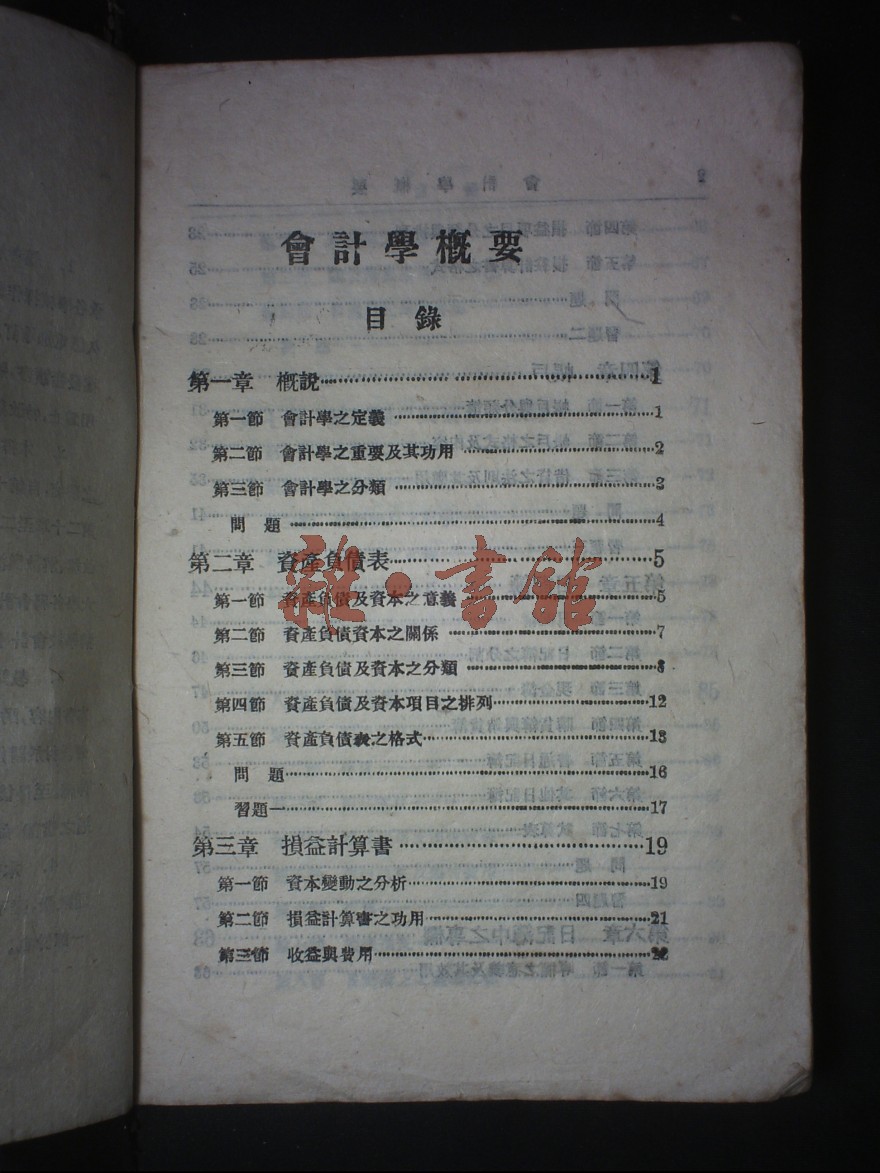 會計學概要
目錄
第一章 概說……1
第一節 會計學之定義……1
第二節 會計學之重要及其功用……2
第三節 會計學之分類……3
問題……4
第二章 資產負債表……5
第一節 資產負債及資本之意義……5
第二節 資產負債資本之關係……7
第三節 資產負債及資本之分類……8
第四節 資產負債及資本項目之排列……12
第五節 資產負債表之格式……13
問題……16
習題一……17
第三章 損益計算書……19
第一節 資本變動之分析……19
第二節 損益計算書之功用……21
第三節 收益與費用……22
雜·書館